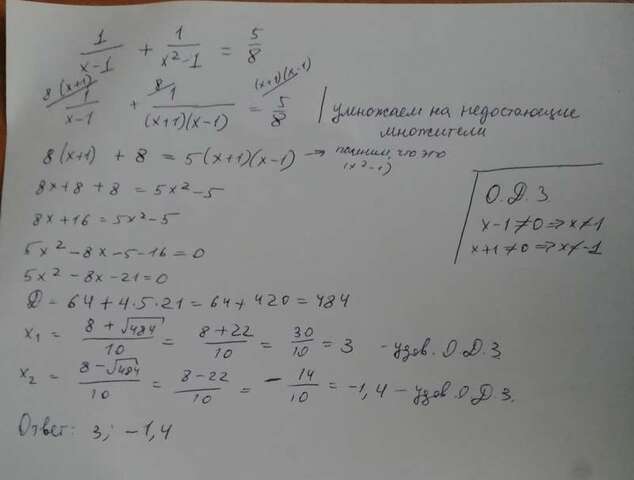 1/(x-1) + 1/(x²-1) = 5/8
8(x+1)/ 1/(x-1) + 8/ 1/((x+1)(x-1)) = (x+1)(x-1)/ 5/8 | умножаем на недостающие
множители
8(x+1) + 8 = 5(x+1)(x-1) → помним, что это
(x²-1)
8x+8+8 = 5x²-5
8x+16=5x²-5
5x²-8x-5-16=0
5x²-8x-21=0
О.Д.З.
x-1≠0⇒x≠1
x+1≠0⇒x≠-1
D = 64+4·5·21=64+420=484
x₁ = (8+√484)/10 = (8+22)/10 = 30/10 = 3 - удов. О.Д.З.
x₂ = (8-√484)/10 = (8-22)/10 = -14/10 = -1,4 - удов. О.Д.З.
Ответ: 3; -1,4